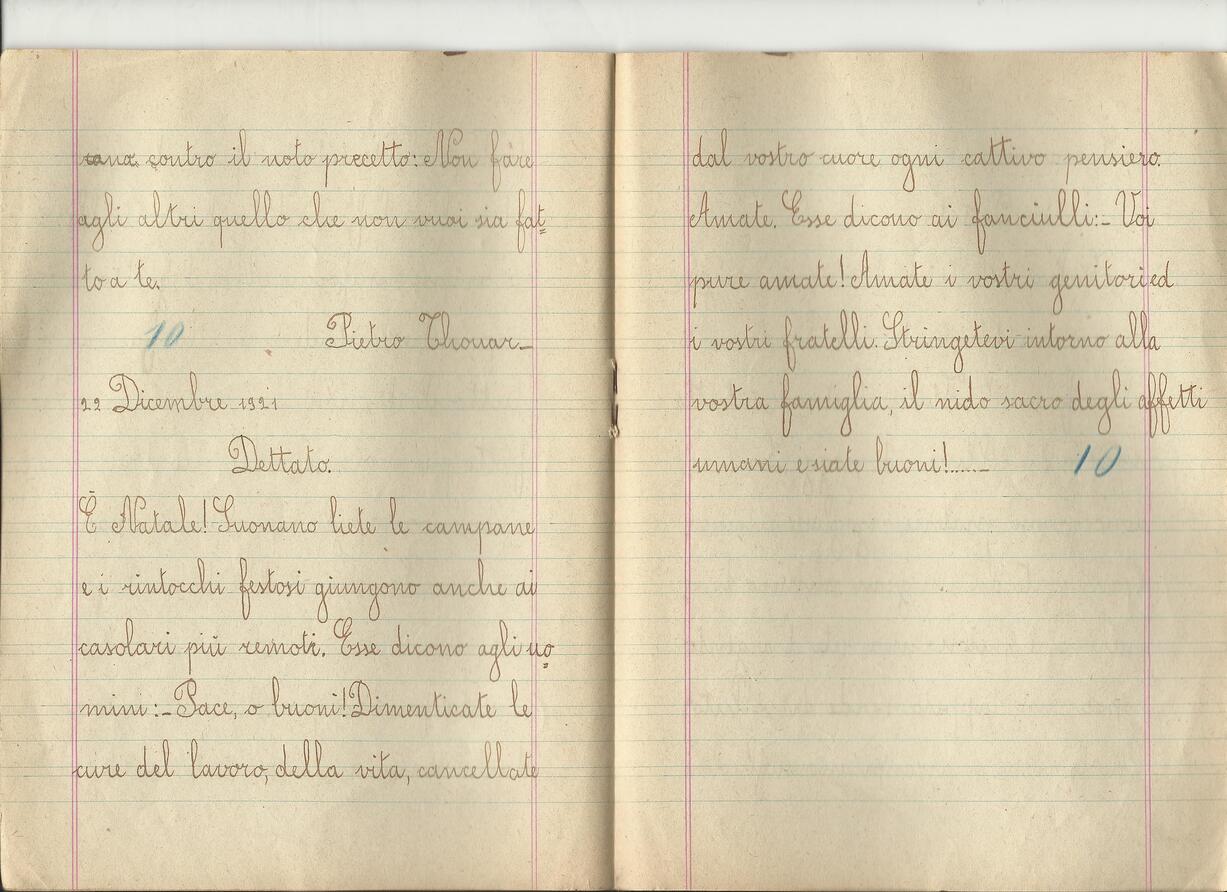 contro il noto precetto: Non fare
agli altri quello che non vuoi sia fat=
to a te.
10 Pietro Thouar_
22 Dicembre 1921
Dettato.
È Natale! Suonano liete le campane
e i rintocchi festosi giungono anche ai
casolari più remoti. Esse dicono agli uo=
mini:_ Pace, o buoni! Dimenticate le
cure del lavoro, della vita, cancellate
dal vostro cuore ogni cattivo pensiero.
Amate. Esse dicono ai fanciulli:_ Voi
pure amate! Amate i vostri genitori ed
i vostri fratelli. Stringetevi intorno alla
vostra famiglia, il nido sacro degli affetti
umani e siate buoni!......_ 10